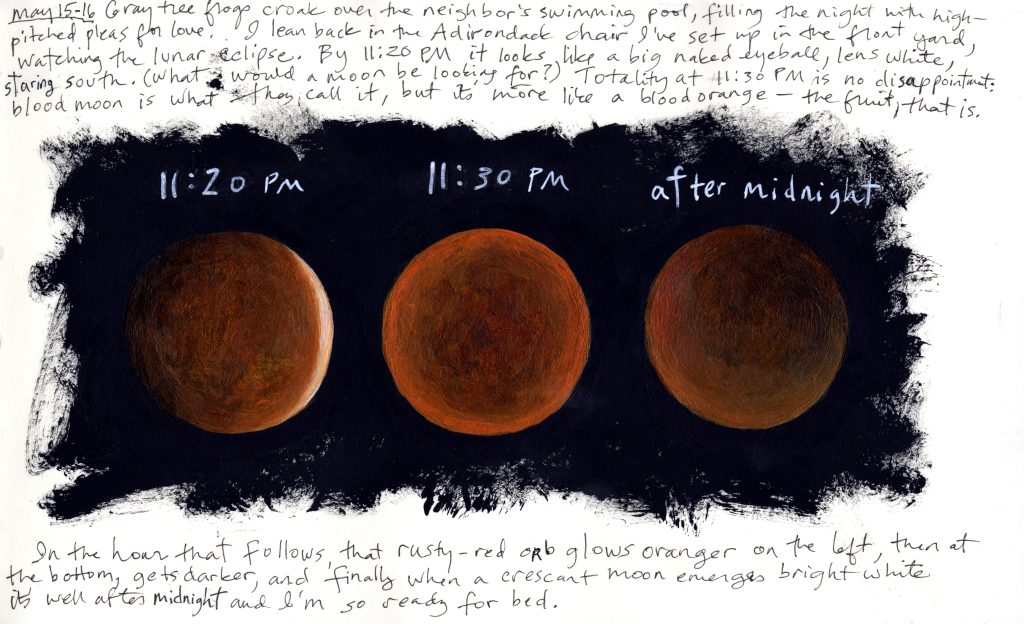 May 15-16 Gray tree frogs croak over the neighbor's swimming pool, filling the night with high-
pitched pleas for love. I lean back in the Adirondack chair I've set up in the front yard,
watching the lunar eclipse. By 11:20 PM it looks like a big naked eyeball, lens white,
staring south. (What would a moon be looking for?) Totality at 11:30 PM is no disappointment:
blood moon is what they call it, but it's more like a blood orange – the fruit, that is.
11:20 PM 11:30 PM after midnight
In the hour that follows, that rusty-red orb glows oranger on the left, then at
the bottom, gets darker, and finally when a crescant moon emerges bright white
it's well after midnight and I'm so ready for bed.